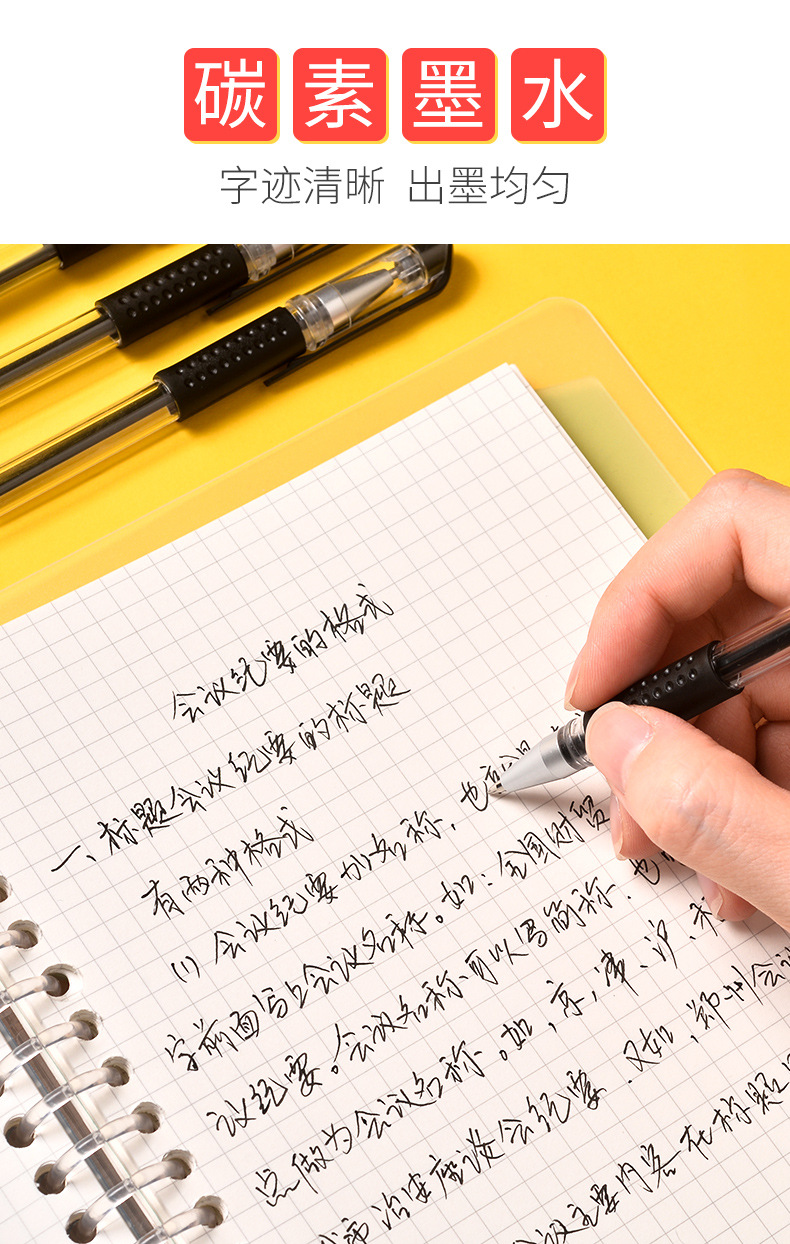 碳素墨水
字迹清晰 出墨均匀
会议纪要的格式
一、标题会议纪要的标题
有两种格式
(1) 会议纪要加名称，也
字前面写上会议名称。如：全国财贸
议纪要。会议名称可以写简称，也
点做为会议名称。如，京，津、沪、
座谈会纪要、又如，郑州会议
议主要内容在标题